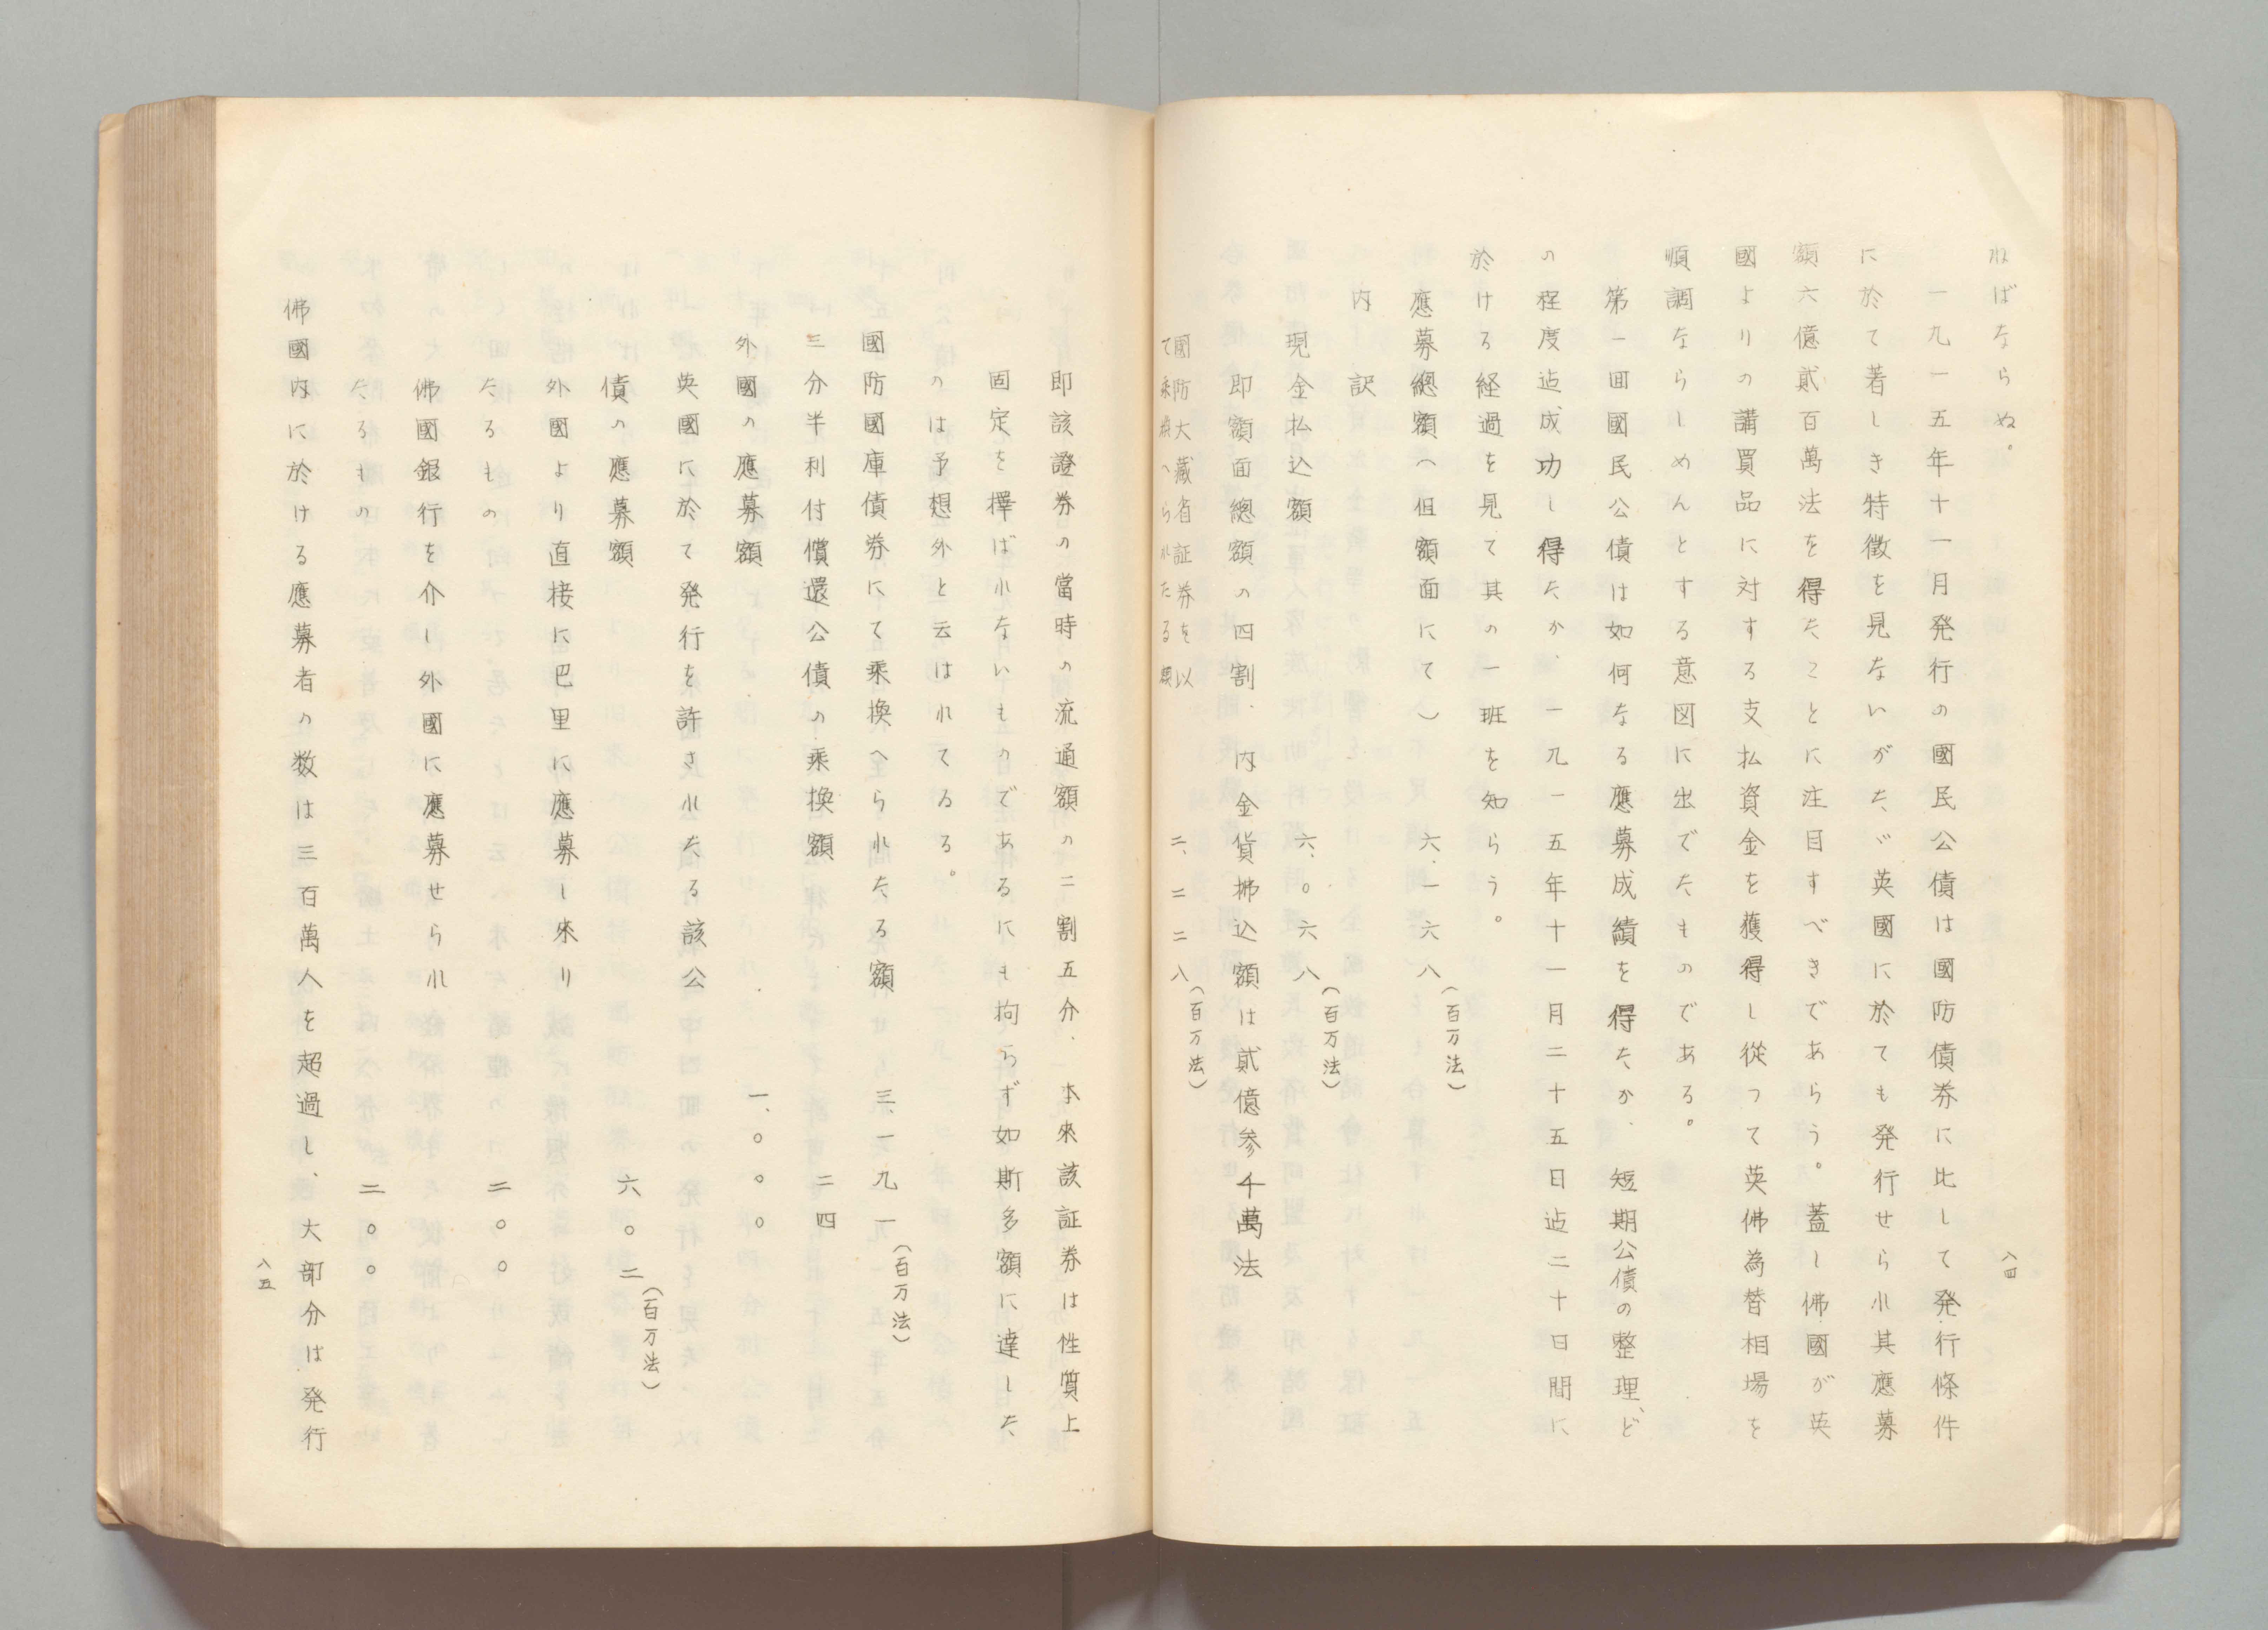 ねばならぬ。
一九一五年十一月発行の國民公債は國防債券に比して発行條件
に於て著しき特徴を見ないがたゞ英國に於ても発行せられ其應募
額六億貳百萬法を得たことに注目すべきであらう。蓋し佛國が英
國よりの購買品に対する支払資金を獲得し從って英佛為替相場を
順調ならしめんとする意図に出でたものである。
第一囬國民公債は如何なる應募成績を得たか、短期公債の整理、ど
の程度迠成功し得たか、一九一五年十一月二十五日迠二十日間に
於ける経過を見て其の一班を知らう。
應募總額(但額面にて) 六、一六八(百万法)
内訳
現金払込額 六、〇六八(百万法)
即額面總額の四割、内金貨拂込額は貳億参千萬法
國防大藏省証券を以
て乘換へられたる額 二、二二八(百万法)
八四
即該證券の當時の流通額の二割五分、本來該証券は性質上
固定を擇ばれないものであるにも拘らず如斯多額に達した
のは予想外と云はれてゐる。
國防國庫債券にて乘換へられたる額 三、一九一(百万法)
三分半利付償還公債の乘換額 二四
外國の應募額 一、〇〇〇
英國に於て発行を許されたる該公
債の應募額 六〇二(百万法)
外國より直接に巴里に應募し來り
たるもの 二〇〇
佛國銀行を介し外國に應募せられ
たるもの 二〇〇
佛國内に於ける應募者の数は三百萬人を超過し、大部分は発行
八五